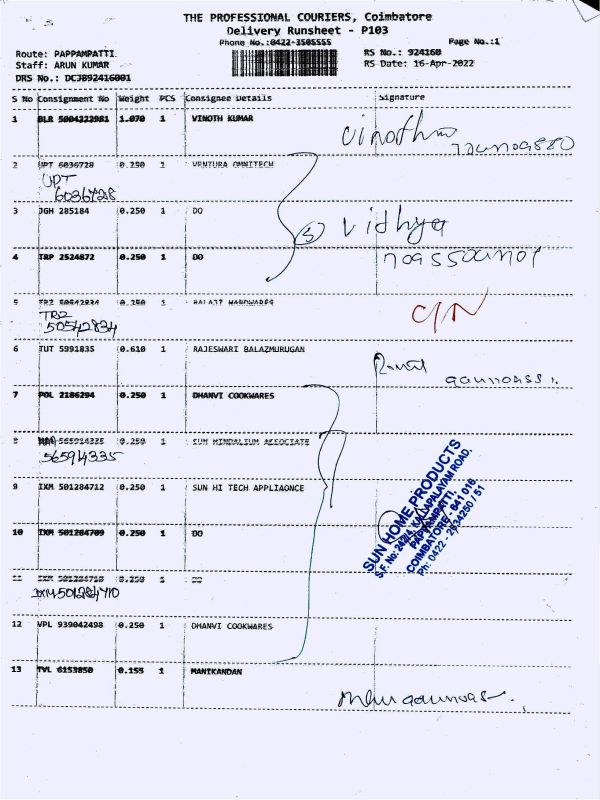 THE PROFESSIONAL COURIERS, Coimbatore
Delivery Runsheet - P103
Phone No.:0422-3505555 Page No.:1
Route: PAPPAMPATTI RS No.: 924160
Staff: ARUN KUMAR RS Date: 16-Apr-2022
DRS No.: DCJB92416001
S No Consignment No Weight PCS Consignee Details Signature
1 BLR 5004222981 1.070 1 VINOTH KUMAR
2 UPT 6036728 0.250 1 VENTURA OMNITECH
UPT
6036728
3 JGH 285184 0.250 1 DO
(3) Vidhya
4 TRP 2524872 0.250 1 DO
5 TRZ 50542834 0.250 1 BALAJI HARDWARES
TRZ
50542834
6 TUT 5991835 0.610 1 RAJESWARI BALAZMURUGAN
7 POL 2186294 0.250 1 DHANVI COOKWARES
8 565914335 0.250 1 SUN HINDALIUM ASSOCIATE
565914335
9 IXM 501284712 0.250 1 SUN HI TECH APPLIAONCE
10 IXM 501284709 0.250 1 DO
11 IXM 501284710 0.250 1 DO
IXM 501284710
SUN HOME PRODUCTS
S.F. No: 242/4, KALAPALAYAM ROAD,
PAPPAMPATTI,
COIMBATORE - 641 016.
Ph: 0422 - 2634250 / 51
12 VPL 939042498 0.250 1 DHANVI COOKWARES
13 TVL 6153850 0.155 1 MANIKANDAN